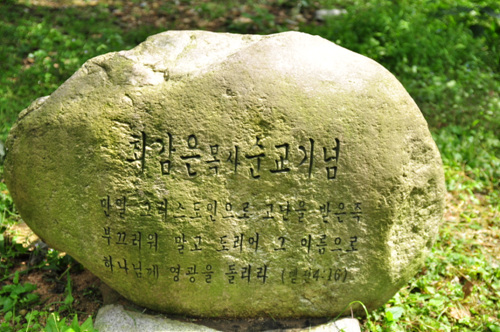 최감은목사순교기념
만일 그리스도인으로 고난을 받은즉
부끄러워 말고 도리어 그 이름으로
하나님께 영광을 돌리라 (벧전4:16)